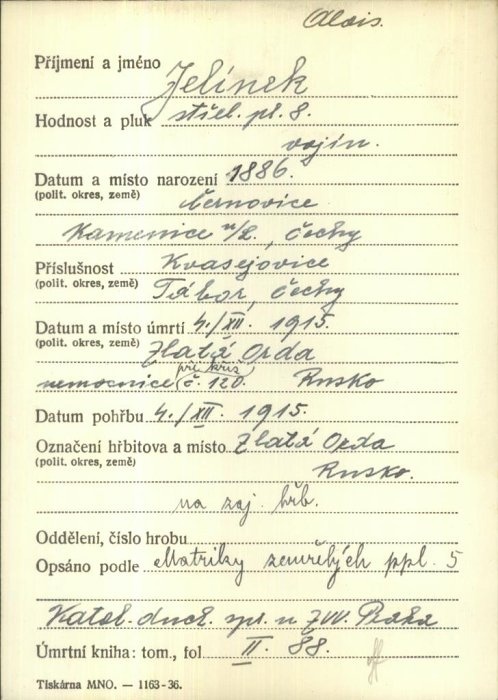 Alois.
Příjmení a jméno Jelínek
Hodnost a pluk střel. pl. 8.
vojín.
Datum a místo narození 1886.
(polit. okres, země) Černovice
Kamenice n/L, Čechy
Příslušnost Kvasejovice
(polit. okres, země) Tábor, Čechy
Datum a místo úmrtí 4./XII. 1915.
(polit. okres, země) Zlatá Orda
při kříž
nemocnice č. 120. Rusko
Datum pohřbu 4./XII. 1915.
Označení hřbitova a místo Zlatá Orda
(polit. okres, země) Rusko.
na zaj. hřb.
Oddělení, číslo hrobu
Opsáno podle Matriky zemřelých ppl. 5
Katol. duch. spr. u ZVV. Praha
Úmrtní kniha: tom., fol II. 88.
Tiskárna MNO. — 1163-36.